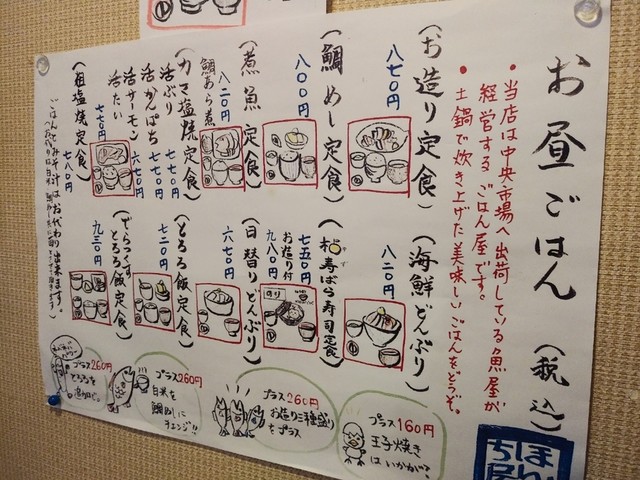 お昼ごはん(税込)
・当店は中央市場へ出荷している魚屋が
経営するごはん屋です。
・土鍋で炊き上げた美味しいごはんをどうぞ。
(お造り定食)
八七〇円
(鯛めし定食)
八〇〇円
(煮魚定食)
鯛あら煮
八二〇円
(カマ塩焼定食)
活ぶり 七七〇円
活かんぱち 七七〇円
活サーモン 六七〇円
活たい 七七〇円
(粗塩焼定食)
七八〇円
(海鮮どんぶり)
八二〇円
(柚寿ばら寿司定食)
七五〇円
お造り付
九八〇円
(日替りどんぶり)
六七〇円
(とろろ飯定食)
七二〇円
とろろ飯定食)
九三〇円
ごはん、みそ汁はお代わり出来ます。
プラス160円
玉子焼き
はいかが?
プラス260円
お造り三種盛り
をプラス
プラス260円
白米を
鯛めしに
チェンジ!!
プラス260円
とろろを